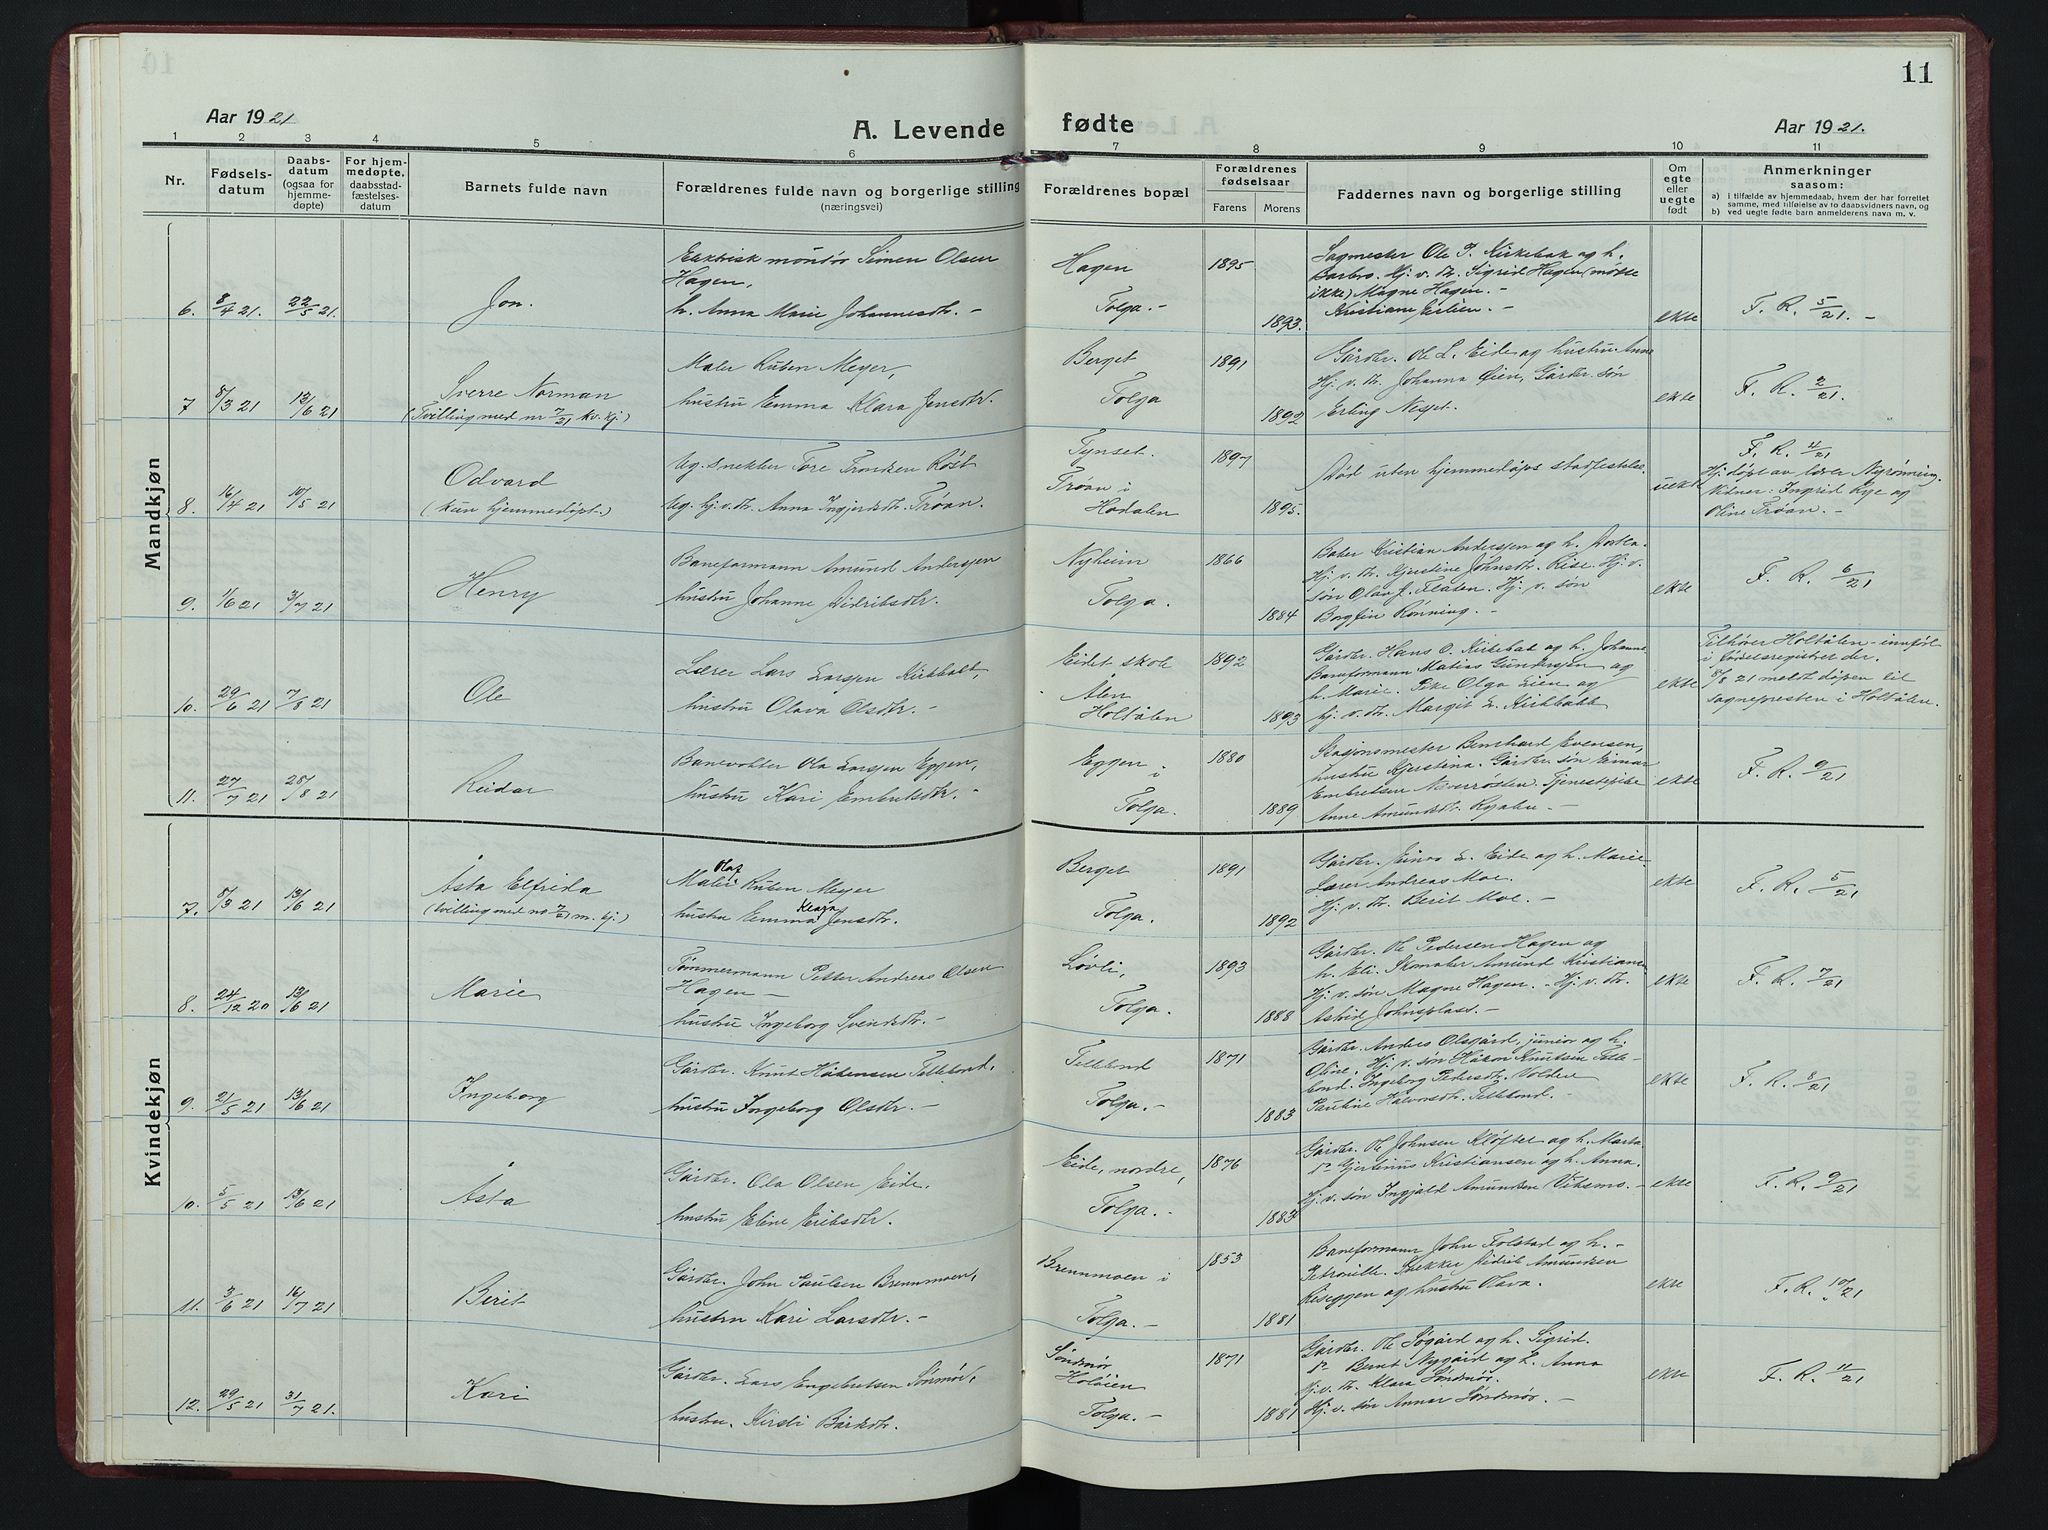 11
Aar 1921
A. Levende fødte
Aar 1921.
1 2 3 4 5 6 7 8 9 10 11
Nr.
Fødsels-
datum
Daabs-
datum
(ogsaa for
hjemme-
døpte)
For hjem-
medøpte,
daabsstad-
fæstelses-
datum
Barnets fulde navn
Forældrenes fulde navn og borgerlige stilling
(næringsvei)
Forældrenes bopæl
Forældrenes
fødselsaar
Farens Morens
Faddernes navn og borgerlige stilling
Om
egte
eller
uegte
født
Anmerkninger
saasom:
a) i tilfælde av hjemmedaab, hvem der har forrettet
samme, med tilføielse av to daabsvidners navn, og
b) ved uegte fødte barn anmelderens navn m. v.
Mandkjøn
6. 8/4 21. 22/5 21. Jon.
Elektrisk montør Simen Olsen
Hagen,
h. Anna Marie Johannesdtr. -
Hagen
Tolga. -
1895 1893.
Sagmester Ole P. Kirkebak og h.
Barbro. Hj. v. dr. Sigrid Hagen (møtte
ikke) Magne Hagen. -
Kristiane Eilien. -
ekte F. R. 5/21. -
7 8/3 21 13/6 21 Sverre Norman
(Tvilling med nr 7/21 kv. kj.)
Maler Ruben Meyer,
hustru Emma Klara Jensdtr.
Berget
Tolga
1891 1892
Gårdbr. Ole L. Eide og hustru Anne
Hj. v. dr. Johanna Øien, Gårdbr. søn
Erling Nesset.
ekte F. R. 2/21.
8. 16/4 21 10/5 21 Odvard
(kun hjemmedøpt.)
Ug. snekker Tore Tronsen Røst
Ug. hj. v. dr. Anna Ingjerdsdtr. Trøan.
Tynset.
Trøan i
Hodalen
1897 1895.
Død uten hjemmedåps stadfestelse.
uekte
F. R. 4/21
Hj. døpt av lærer Nyrønning.
Vidner: Ingrid Rye og
Oline Trøan. -
9. 1/6 21 3/7 21 Henry
Baneformann Amund Anderssen
hustru Johanne Didriksdtr.
Nyheim
Tolga.
1866 1884
Baker Kristian Anderssen og h. Dortea.
Hj. v. dr. Kjerstine Johnsdr. Rise. Hj. v.
søn Olav J. Flaten. Hj. v. søn
Borgfin Rønning. -
ekte F. R. 6/21
10. 29/6 21 7/8 21 Ole
Lærer Lars Larssen Kirkbakk,
hustru Olava Olsdtr. -
Eidet skole
Ålen
Holtålen
1892 1893
Gårdbr. Hans O. Kirkebak og h. Johanne
Baneformann Matias Gunderssen og
h. Marie. Pike Olga Lien og
hj. v. dr. Margit L. Kirkbakk
ekte
Tilhører Holtålen - innført
i fødselsregistret der.
8/8 21 meldt døpen til
sognepresten i Holtålen.
11. 27/7 21 28/8 21 Reidar
Banevokter Ola Larssen Eggen,
hustru Kari Embretsdtr. -
Eggen i
Tolga.
1880 1889
Stasjonsmester Bernhard Evensen,
hustru Kjerstina. Gårdbr. søn Einar
Embretsen Neverøsten. Tjenestepike
Anne Amundsdtr. -
ekte F. R. 9/21
Kvindekjøn
7. 8/3 21 13/6 21 Åsta Elfrida
(tvilling med no 7/21 m. kj.)
Olaf
Maler Ruben Meyer
Klara
hustru Emma Jensdtr.
Berget
Tolga.
1891 1892
Gårdbr. Einar L. Eide og h. Marie.
Lærer Andreas Moe.
Hj. v. dr. Berit Moe. -
ekte F. R. 5/21
8. 24/12 20 13/6 21 Marie
Tømmermann Petter Andreas Olsen
Hagen -
hustru Ingeborg Svendsdtr. -
Løvli,
Tolga.
1893 1888
Gårdbr. Ole Pedersen Hagen og
h. Eli. Skomaker Amund Kristiansen
Hj. v. søn Magne Hagen. - Hj. v. dr.
Astrid Johnsplass. -
ekte F. R. 7/21
9. 21/5 21 13/6 21 Ingeborg
Gårdbr. Knut Håkensen Tillebond.
hustru Ingeborg Olsdtr. -
Tillebond
Tolga. -
1871 1883
Gårdbr. Anders Olsgård, junior og h.
Oline. Hj. v. søn Håkon Knutsen Tille-
bond. Ingeborg Pedersdtr. Volden
Pauline Halvorsdtr. Tillebond. -
ekte F. R. 8/21
10. 5/5 21 13/6 21 Åsta
Gårdbr. Ola Olsen Eide.
hustru Eline Eriksdtr.
Eide, nordre,
Tolga. -
1876 1883
Gårdbr. Ole Johnsen Kløftet og h. Marta.
Do Gjertinius Kristiansen og h. Anna.
Hj. v. søn Ingjald Amundsen Viksmo. -
ekte F. R. 9/21
11. 3/6 21 16/7 21 Berit
Gårdbr. John Paulsen Brennmoen,
hustru Kari Larsdtr. -
Brennmoen i
Tolga. -
1853 1881
Baneformann John Folstad og h. -
Petronille. Snekker Didrik Amundsen
Riseggen og hustru Olava.
ekte F. R. 10/21
12. 29/5 21 31/7 21. Kari
Gårdbr. Lars Engebretsen Sønmør,
hustru. Kirsti Bårdsdtr. -
Søndmør
Holøien
Tolga. -
1871 1881
Gårdbr. Ole Søgård og h. Sigrid.
Do Bernt Nygård og h. Anna
Hj. v. dr. Klara Søndmør.
Hj. v. søn Annar Søndmør. -
ekte F. R. 11/21